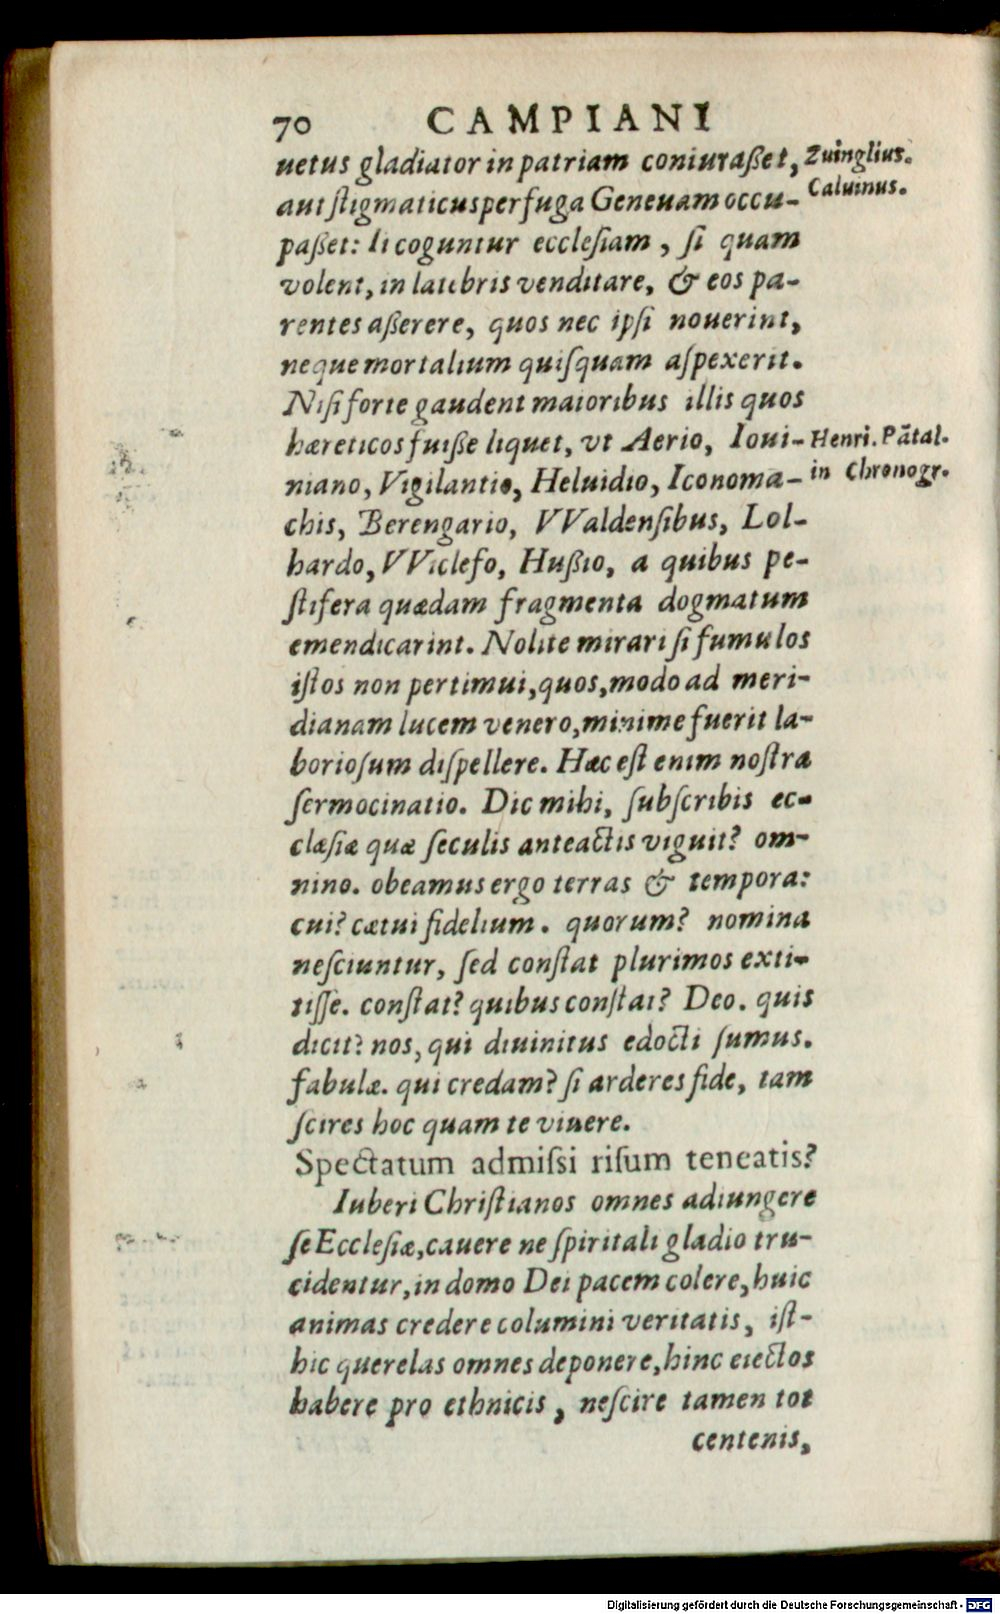 70 CAMPIANI
uetus gladiator in patriam coniuraßet, Zuinglius.
aut ſtigmaticus perfuga Geneuam occu- Caluinus.
paßet: Ii coguntur eccleſiam, ſi quam
volent, in latebris venditare, & eos pa-
rentes aßerere, quos nec ipſi nouerint,
neque mortalium quiſquam aſpexerit.
Niſi forte gaudent maioribus illis quos
hæreticos fuiße liquet, vt Aerio, Ioui- Henri. Pãtal.
niano, Vigilantio, Heluidio, Iconoma- in Chronogr.
chis, Berengario, VValdenſibus, Lol-
hardo, VViclefo, Hußio, a quibus pe-
ſtifera quædam fragmenta dogmatum
emendicarint. Nolite mirari ſi fumulos
iſtos non pertimui, quos, modo ad meri-
dianam lucem venero, minime fuerit la-
borioſum diſpellere. Hæc eſt enim noſtra
ſermocinatio. Dic mihi, ſubſcribis ec-
clæſiæ quæ ſeculis anteactis viguit? om-
nino. obeamus ergo terras & tempora:
cui? cætui fidelium. quorum? nomina
neſciuntur, ſed conſtat plurimos exti-
tiſſe. conſtat? quibus conſtat? Deo. quis
dicit? nos, qui diuinitus edocti ſumus.
fabulæ. qui credam? ſi arderes fide, tam
ſcires hoc quam te viuere.
Spectatum admiſsi riſum teneatis?
Iuberi Chriſtianos omnes adiungere
ſe Eccleſiæ, cauere ne ſpiritali gladio tru-
cidentur, in domo Dei pacem colere, huic
animas credere columini veritatis, iſt-
hic querelas omnes deponere, hinc eiectos
habere pro ethnicis, neſcire tamen tot
centenis,
Digitalisierung gefördert durch die Deutsche Forschungsgemeinschaft - DFG